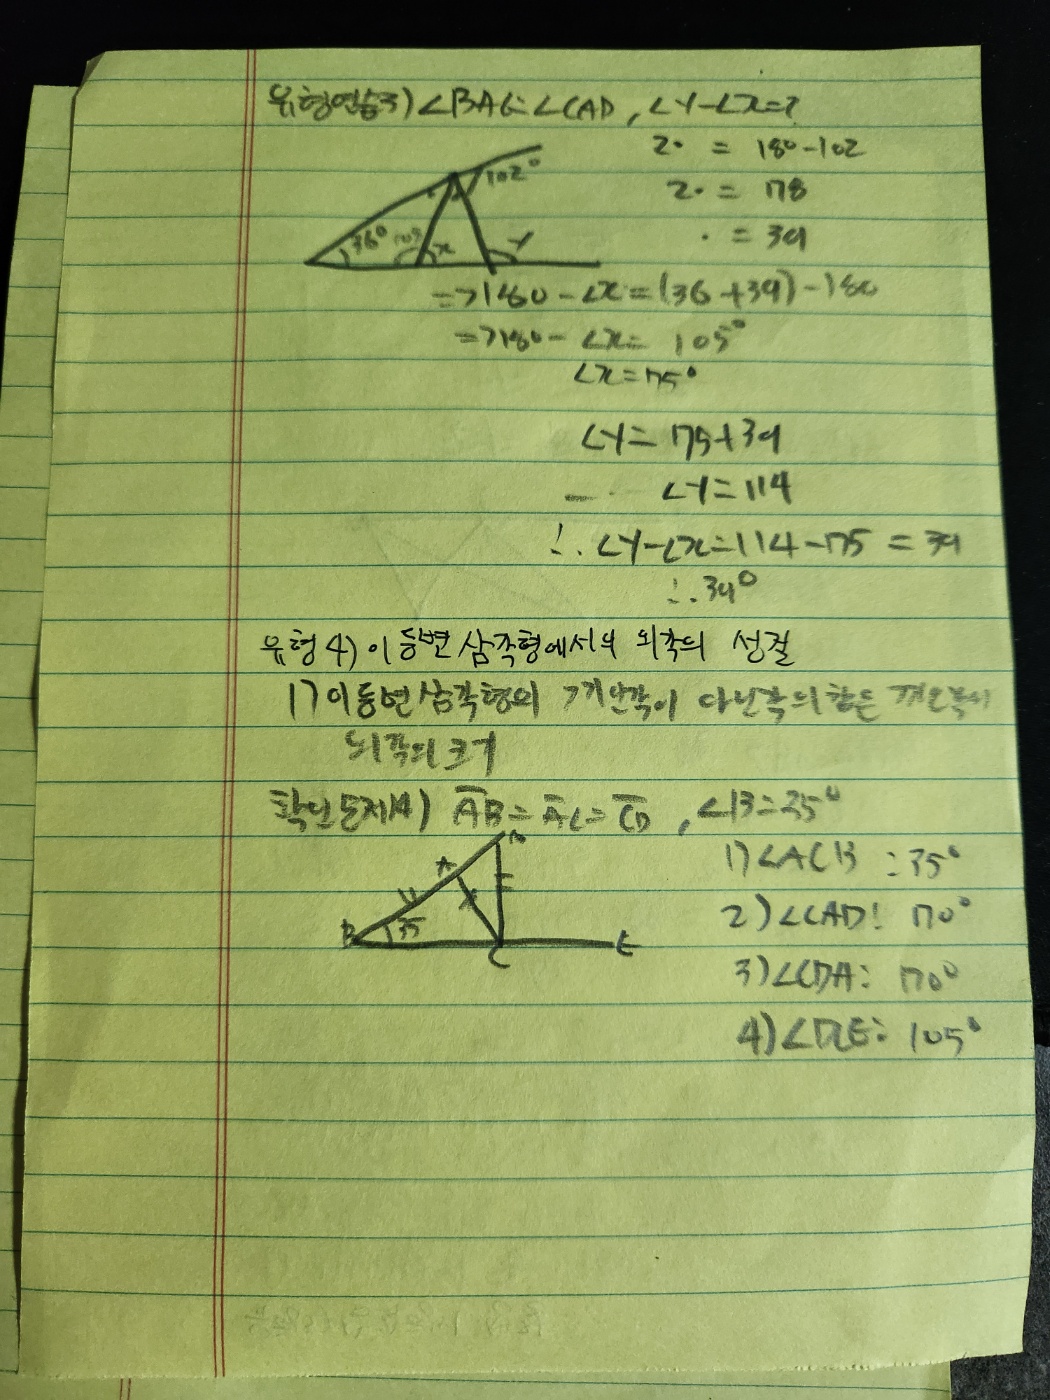 유형연습3) ∠BAC=∠CAD, ∠Y-∠x=?
2• = 180-102
2• = 78
• = 39
102°
36° 105 x Y
=>180-∠x=(36+39)-180
=>180-∠x= 105°
∠x=75°
∠Y= 75+39
∠Y=114
∴ ∠Y-∠x=114-75 = 39
∴39°
유형4) 이등변 삼각형에서의 외각의 성질
1) 이등변삼각형의 각이 아닌각의 합은
외각의 크기
확인문제14) AB=AC=CD, ∠B=35°
1)∠ACB :35°
2)∠CAD: 70°
3)∠CDA: 70°
4)∠DCE: 105°
D
A
B 35
C E